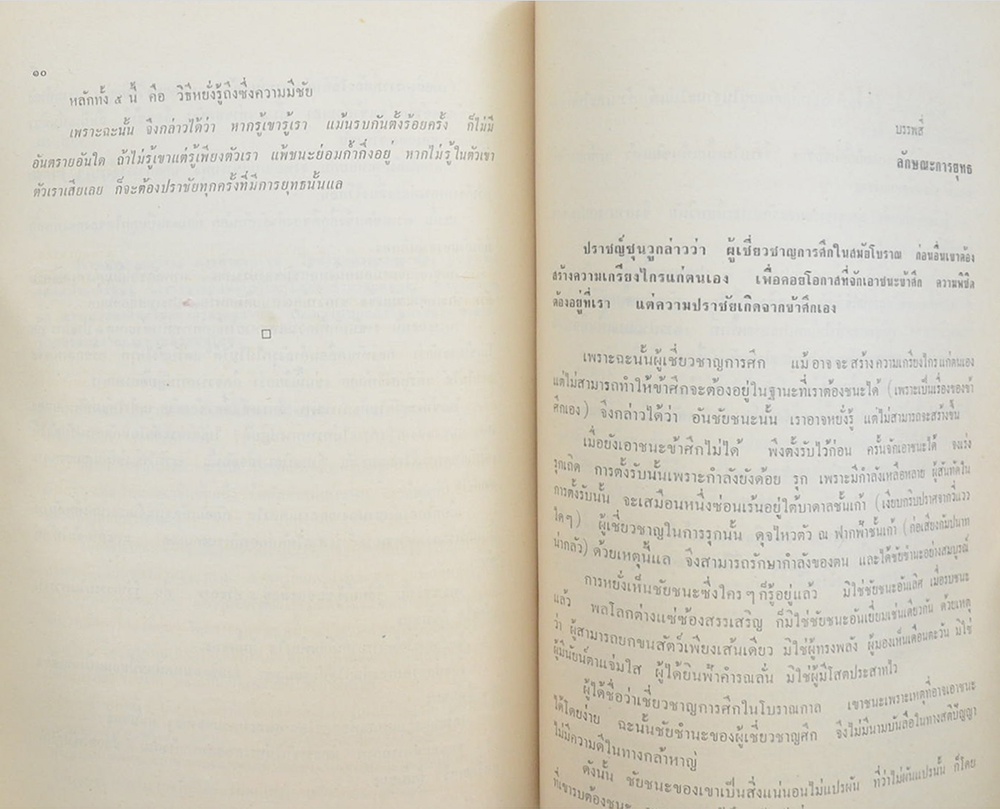 ๑๐
หลักทั้ง ๕ นี้ คือ วิธีหยั่งรู้ถึงซึ่งความมีชัย
เพราะฉะนั้น จึงกล่าวได้ว่า หากรู้เขารู้เรา แม้นรบกันตั้งร้อยครั้ง ก็ไม่มี
อันตรายอันใด ถ้าไม่รู้เขาแต่รู้เพียงตัวเรา แพ้ชนะย่อมก้ำกึ่งอยู่ หากไม่รู้ในตัวเขา
ตัวเราเสียเลย ก็จะต้องปราชัยทุกครั้งที่มีการยุทธนั้นแล
บรรพสี่
ลักษณะการยุทธ
ปราชญ์ซุนวูกล่าวว่า ผู้เชี่ยวชาญการศึกในสมัยโบราณ ก่อนอื่นเขาต้อง
สร้างความเกรียงไกรแก่ตนเอง เพื่อคอยโอกาสที่จักเอาชนะข้าศึก ความพิชิต
ต้องอยู่ที่เรา แต่ความปราชัยเกิดจากข้าศึกเอง
เพราะฉะนั้นผู้เชี่ยวชาญการศึก แม้อาจจะสร้างความเกรียงไกรแก่ตนเอง
แต่ไม่สามารถทำให้ข้าศึกจะต้องอยู่ในฐานะที่เราต้องชนะได้ (เพราะเป็นเรื่องของข้า
ศึกเอง) จึงกล่าวได้ว่า อันชัยชนะนั้น เราอาจหยั่งรู้ แต่ไม่สามารถจะสร้างขึ้น
เมื่อยังเอาชนะข้าศึกไม่ได้ พึงตั้งรับไว้ก่อน ครั้นจักเอาชนะได้ จงเร่ง
รุกเถิด การตั้งรับนั้นเพราะกำลังยังด้อย รุก เพราะมีกำลังเหลือหลาย ผู้สันทัดใน
การตั้งรับนั้น จะเสมือนหนึ่งซ่อนเร้นอยู่ใต้บาดาลชั้นเก้า (เงียบกริบปราศจากวี่แวว
ใดๆ) ผู้เชี่ยวชาญในการรุกนั้น ดุจไหวตัว ณ ฟากฟ้าชั้นเก้า (ก่อเสียงกัมปนาท
น่ากลัว) ด้วยเหตุนี้แล จึงสามารถรักษากำลังของตน และได้ชัยชำนะอย่างสมบูรณ์
การหยั่งเห็นชัยชนะซึ่งใครๆ ก็รู้อยู่แล้ว มิใช่ชัยชนะอันเลิศ เมื่อรบชนะ
แล้ว พลโลกต่างแซ่ซ้องสรรเสริญ ก็มิใช่ชัยชนะอันเยี่ยมเช่นเดียวกัน ด้วยเหตุ
ว่า ผู้สามารถยกขนสัตว์เพียงเส้นเดียว มิใช่ผู้ทรงพลัง ผู้มองเห็นเดือนตะวัน มิใช่
ผู้มีนัยน์ตาแจ่มใส ผู้ได้ยินฟ้าคำรณลั่น มิใช่ผู้มีโสตประสาทไว
ผู้ได้ชื่อว่าเชี่ยวชาญการศึกในโบราณกาล เขาชนะเพราะเหตุที่อาจเอาชนะ
ได้โดยง่าย ฉะนั้นชัยชำนะของผู้เชี่ยวชาญศึก จึงไม่มีนามบันลือในทางสติปัญญา
ไม่มีความดีในทางกล้าหาญ
ดังนั้น ชัยชนะของเขาเป็นสิ่งแน่นอนไม่แปรผัน ที่ว่าไม่ผันแปรนั้น ก็โดย
ที่เขารบต้องชนะ